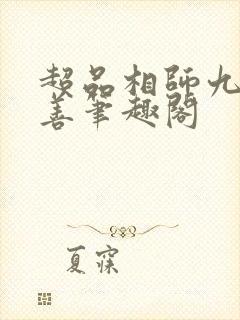 超品相師九
善筆趣閣
夏寐